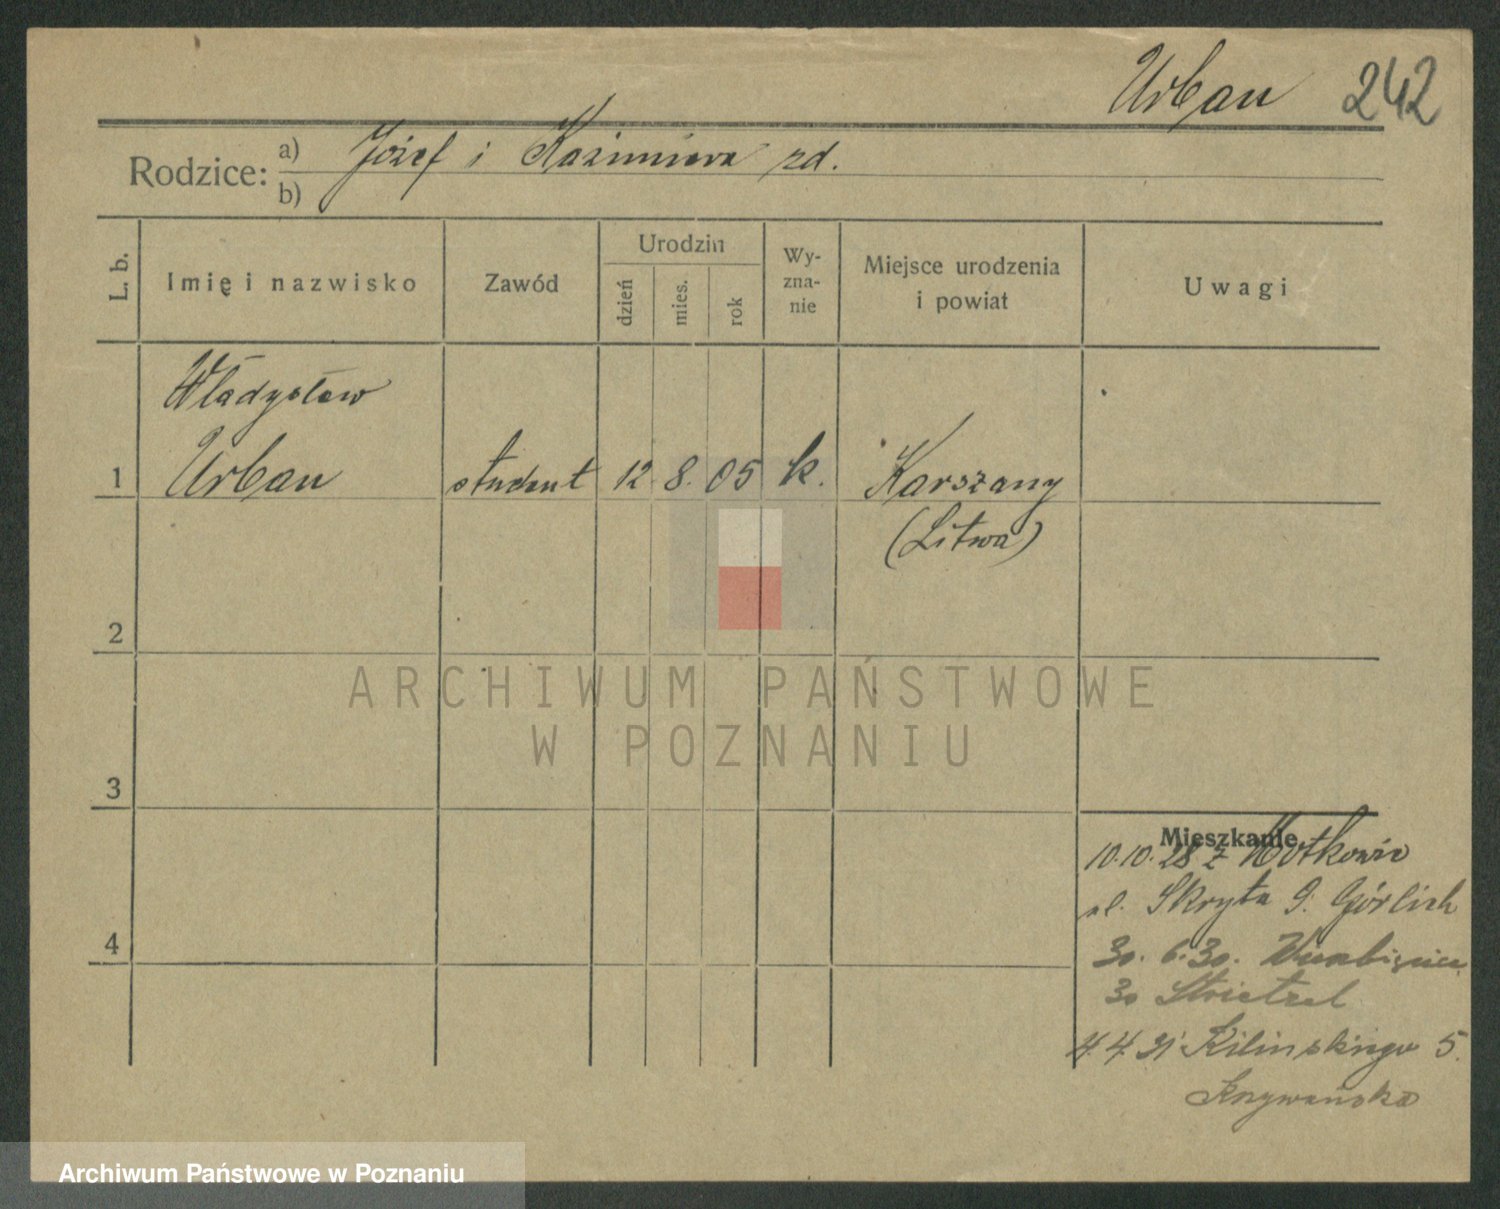 Urban 242
Rodzice: a) Józef i Kazimiera zd.
b)
L. b.
Imię i nazwisko
Zawód
Urodzin
dzień
mies.
rok
Wy-
zna-
nie
Miejsce urodzenia
i powiat
Uwagi
Władysław
1 Urban student 12. 8. 05 k. Karszany
(Litwa)
2
3
4
Mieszkanie
10.10.28 z
ul. Skryta 9. Görlich
30. 6. 30.
30 Strietzel
4. 4. 31 Kilińskiego 5.
ARCHIWUM PAŃSTWOWE
W POZNANIU
Archiwum Państwowe w Poznaniu